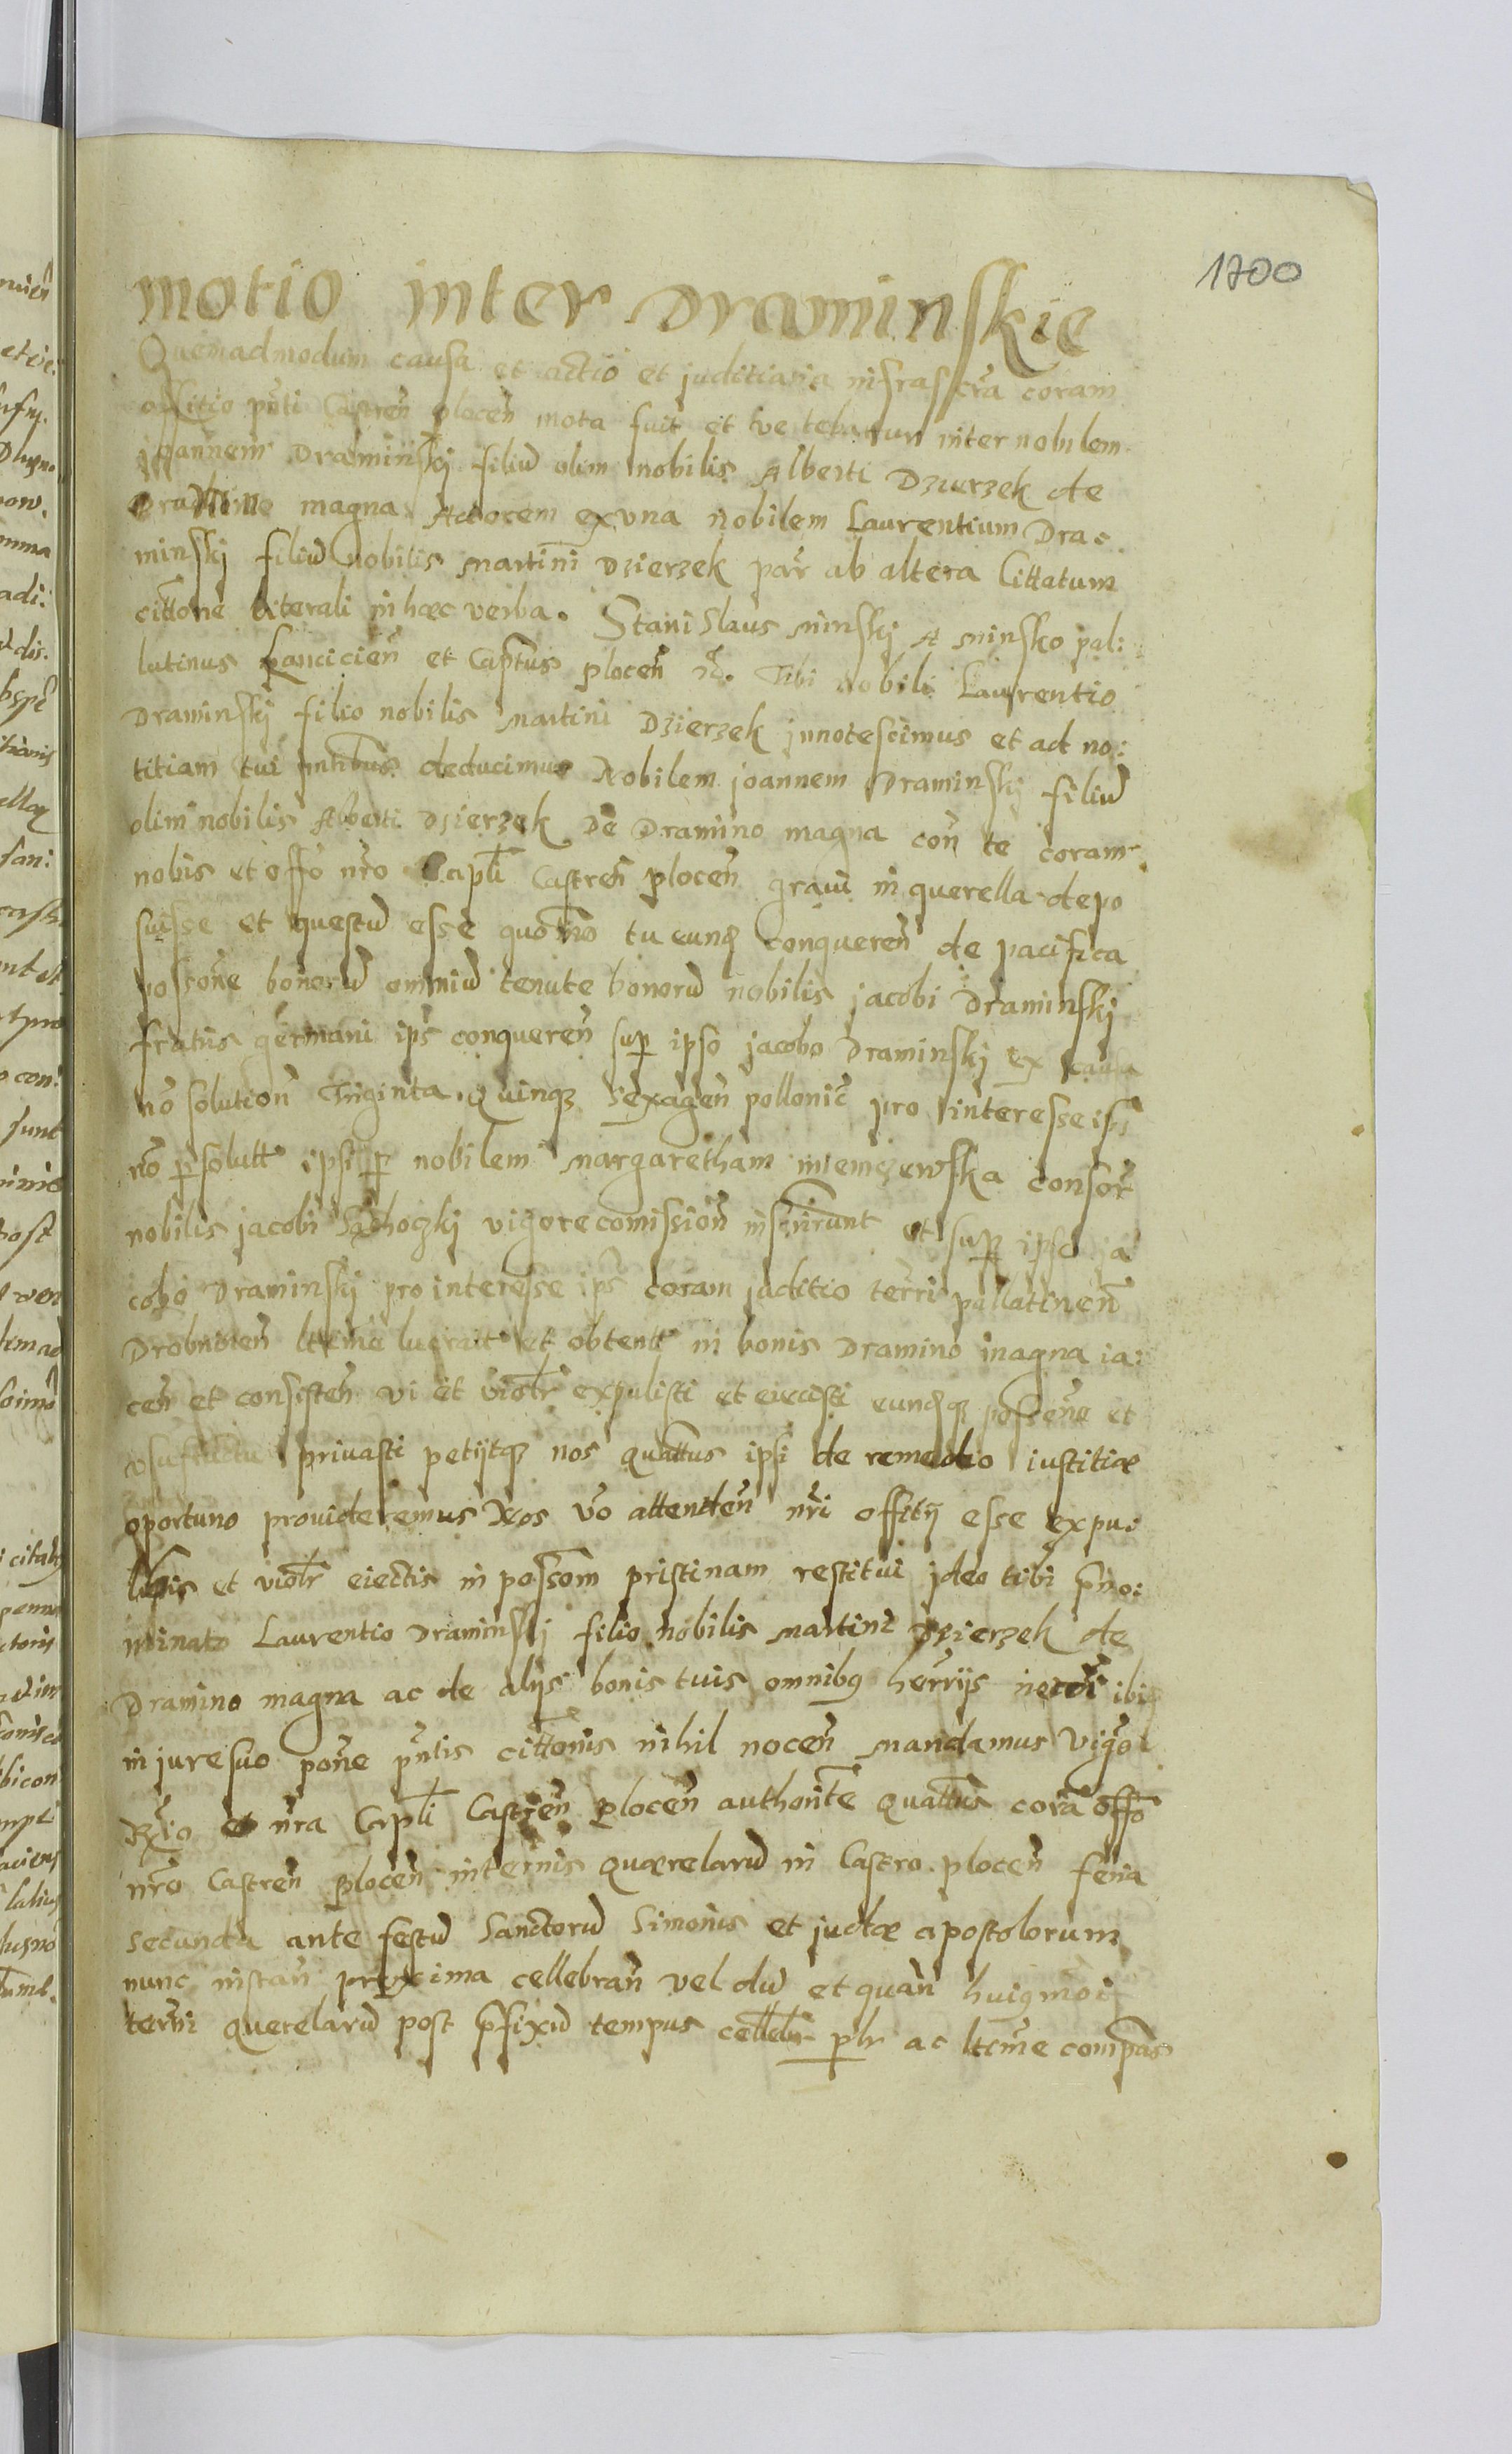 1700
motio inter Draminskie
Quemadmodum causa et actio et juditiaria infrascra coram
offitio pnti Castren plocen mota fuit et vertebatur inter nobilem
joannem Draminskj filiu olim nobilis Alberti Dzierzek de
Dramino magna Actorem ex una nobilem Laurentium Dra:
minskj filiu nobilis martini Dzierzek par ab altera Cittatum
cittone literali in hæc verba. Stanislaus minskj A minsko pal:
latinus Lancicien et Captus plocen Tibi nobili Laurentio
Draminskj filio nobilis martini Dzierzek jnnotescimus et ad no:
titiam tui deducimus Nobilem joannem Draminskj filiu
olim nobilis Alberti Dzierzek De Dramino magna con te coram
nobis et offo nro Capli Castren plocen gravi in querella depo
suisse et questu esse quomo tu eund conqueren de pacifica
possone bonoru omniu tenute bonoru nobilis jacobi Draminskj
fratris germani ips conqueren sup ipso jacobo Draminskj ex causa
no solution Triginta Quinq sexagen pollonic pro interesse ips
no psolutt ipsi p nobilem margaretham niemczewska consor
nobilis jacobi vigore comission inscrirunt et sup ipso ja
cobo Draminskj pro interesse ips coram juditio terri pallatinen
Drobninen lttime lucrait et obtentt in bonis Dramino magna ia:
cen et consisten vi et violtr expulisti et eiecisti eundq possone et
usufructu privasti petijtq nos quattus ipsi de remedio iustitiæ
oportuno provideremus Nos vo attenden nri offitij esse expu:
lsis et violtr eiectis in possom pristinam restitui jdeo tibi pno:
minato Laurentio Draminskj filio nobilis martini Dzierzek de
Dramino magna ac de alijs bonis tuis omnibq herrijs ibiq
in jure suo pone pntis cittonis nihil nocen mandamus vigo
Rgio et nra Capli Castren plocen authorite quattus cora offo
nro Castren plocen in ternis quærelaru in Castro plocen feria
secunda ante festu Sanctoru Simonis et judæ apostolorum
nunc instan proxima cellebran vel du et quan huiqmoi
terni querelaru post pfixu tempus cellebr plr ac lttime compas